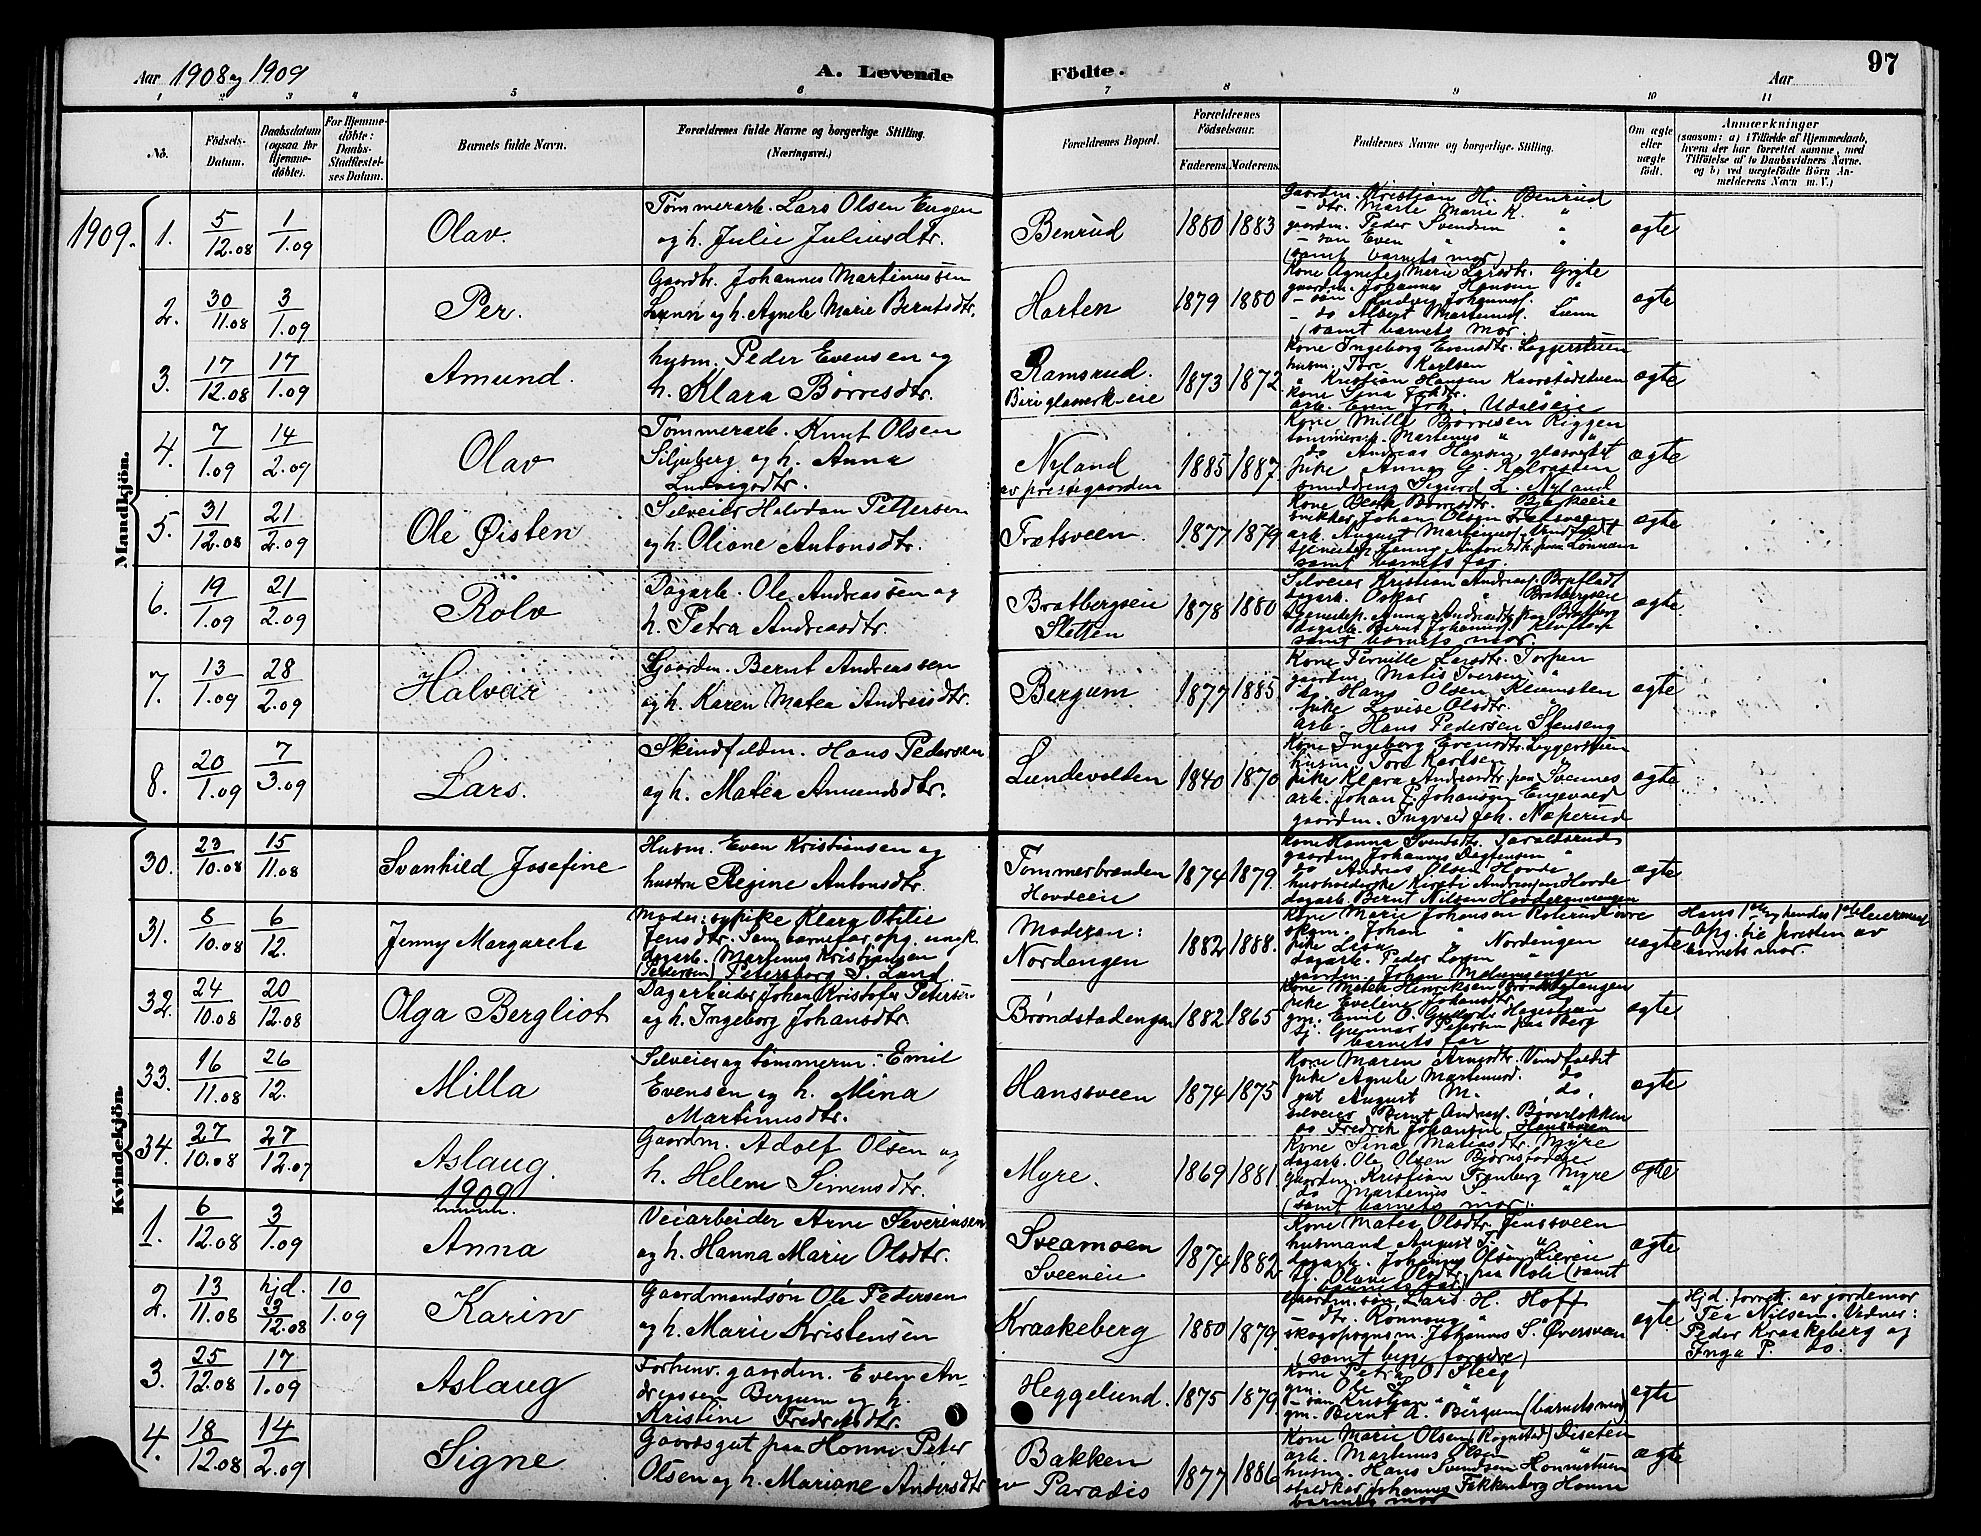 Aar 1908 og 1909
A. Levende
Födte.
Aar
97
1 2 3 4 5 6 7 8 9 10 11
No.
Födsels-Datum.
Daabsdatum (ogsaa for Hjemme-döbte).
For Hjemme-döbte: Daabs-Stadfæstel-ses Datum.
Barnets fulde Navn.
Forældrenes fulde Navne og borgerlige Stilling. (Næringsvei.)
Forældrenes Bopæl.
Forældrenes Födselsaar.
Faderens. Moderens.
Faddernes Navne og borgerlige Stilling.
Om ægte eller uægte födt.
Anmærkninger
(saasom: a) i Tilfælde af Hjemmedaab, hvem der har forrettet samme, med Tilföielse af to Daabsvidners Navne, og b) ved uægtefödte Börn An-melderens Navn m. V.)
Mandkjön.
1909.
1. 5/12.08 1/1.09 Olav.
Tømmerarb. Lars Olsen Engen
og h. Julie Juliusdtr.
Benrud
1880 1883
Gaardm. Kristian H. Benrud
- dtr. Marte Marie K. "
gaardm. Peder Svendsen "
- søn Even " "
(samt barnets mor)
ægte
2. 30/11.08 3/1.09 Per.
Gaardbr. Johannes Martinussen
Lunn og h. Agnete Marie Berntsdtr.
Horten
1879 1880
Kone Agnete Marie Larsdtr. Gryte
gaardm. Johannes Hansen "
- søn Ludvig Johannes.
- do Albert Martinus. Lunn
(samt barnets mor.
ægte
3. 17/12.08 17/1.09 Amund.
husm. Peder Evensen og
h. Klara Børresdtr.
Ramsrud.
Biriglasverk-eie
1873 1872
Kone Ingeborg Evensdtr. Loggerstuen
husm. Tore Karlsen
" Kristian Hansen
Kone Sina Johdtr.
arb. Even Joh. Udalseie
ægte
4. 7/1.09 14/2.09 Olav
Tømmerarb. Knut Olsen
Siljuberg og h. Anna
Ludvigsdtr.
Nyland
av prestegaarden
1885 1887
Kone Milla Børresen Riggen
tømmerarb. Martenius " "
do Andreas Hansen, glasverket
pike Anna G.
smaadreng Sigurd L. Nyland
ægte
5. 31/12.08 21/2.09 Ole Øisten
Selveier Halvdan Pettersen
og h. Oliane Antonsdtr.
Trætsveen.
1877 1879
snikker Johan Olsen Trætsveen
arb. August Martinius.
tjenestep. Jenny Antonsdtr. paa
samt barnets far.
ægte
6. 19/1.09 21/2.09 Rolv
Dagarb. Ole Andreassen og
h. Petra Andreasdtr.
Bratbergseie
Sletten
1878 1880
Selveier Kristian Andreas.
dagarb. Oskar " Bratbergseie
tjenestep. Anna Andreasdtr. paa Bratberg
dagarb. Bernt Johannes.
samt barnets mor.
ægte
7. 13/1.09 28/2.09 Halvar
Gaardm. Bernt Andreassen
og h. Karen Matea Andreasdtr.
Bergum
1877 1885
Kone Pernille Larsdtr. Torpen
gaardm. Matis Iversen "
do. Hans Olsen
pike Lovise Olsdtr.
arb. Hans Pedersen Stenseng
ægte
8. 20/1.09 7/3.09 Lars.
Skindfeldm. Hans Pedersen
og h. Matea Amundsdtr.
Lundevolden
1840 1870
Kone Ingeborg Evensdtr. Loggerstuen
husm. Tore Karlsen "
pike Klara Andreasdtr. paa Svennes
arb. Johan P. Johansen Engevold
gaardm. Ingvald Joh. Næperud
ægte
Kvindekjön.
30. 23/10.08 15/11.08 Svanhild Josefine
Husm. Even Kristiansen og
hustru Regine Antonsdtr.
Tømmerbraaden
Hovdeeie
1874 1879.
Kone Hanna Svendsdtr. Taraldsrud
gaardm. Johannes "
do Andreas Olsen Hovde
husholderske Kirsti Andreassen Hovde
dagarb. Bernt Nilsen
ægte
31. 8/10.08 6/12. Jenny Margarete
Moder: sypike Klara Otilie
Jensdtr. Som barnefar opg. ungk.
dagarb. Martenus Kristiansen
(Pedersen) Petersborg S. Land.
Moderen:
Nordengen
1882 1888.
Kone Marie Johansen Roterud øvre
skom. Johan " "
pike Lisa " Nordengen
dagarb. Peder Larsen "
gaardm. Johan Melumsengen
uægte
Hans 1ste og hendes 1ste leiermaal
Opg. til presten av
barnets mor.
32. 24/10.08 20/12.08 Olga Bergliot
Dagarbeider Johan Kristofer Petersen
og h. Ingeborg Johansdtr.
Brøndstadengen
1882 1865
Kone Matea Henriksen Brøndstadengen
pike Eveline Johansdtr. do
gm. Emil O.
tj. Gunnar Petersen paa Berg
barnets far
ægte
33. 16/11.08 26/12. Milla
Selveier og tømmerm. Emil
Evensen og h. Mina
Martinusdtr.
Hansveen
1874 1875
Kone Maren Arnesdtr. Vindfaldet
pike Agnete Martinusd. do
gut August M. do,
selveier Bernt Andreas. Bøverbakken
do Fredrik Johansen Hansveen
ægte
34. 27/10.08 27/12.07 Aslaug.
Gaardm. Adolf Olsen og
h. Helene Simensdtr.
Myre.
1869 1881.
Kone Sina Matiasdtr. Myre
dagarb. Ole Olsen
gaardm. Kristian Tronberg Myre
do Martenius "
(samt barnets mor).
ægte
1909
1. 6/12.08 3/1.09 Anna
Veiarbeider Arne Severinsen
og h. Hanna Marie Olsdtr.
Sveamoen
Sveeneie
1874 1882
Kone Matea Olsdtr. Jensveen
husmand August T. "
dagarb. Johannes Olsen
tj. Olava Olsdtr. paa (samt
barnets far)
ægte
2. 13/11.08 hjd. 13/12.08 10/1.09 Karin
Gaardmandsøn Ole Pedersen
og h. Marie Kristensen
Kraakeberg
1880 1879.
Gaardm. søn Lars H. Hoff
- dtr. Rønnaug "
skogopsynsm. Johannes S. Øversveen
(samt begge forældre)
ægte
Hjd. forrett. av jordemor
Tea Nilsen. Vidner:
Peder Kraakeberg og
Inga P. do.
3. 25/12.08 17/1.09 Aslaug
Forhenv. gaardm. Even An-
dreassen Bergum og h.
Kristine Fredriksdtr.
Heggelund.
1875 1879.
Kone Petra O. Steeg
gm. Ole S. "
- søn Kristian " "
gm. Bernt A. Bergum (barnets mor)
ægte
4. 18/12.08 14/2.09 Signe
Gaardsgut paa Honne Peter
Olsen og h. Mariane Andersdtr.
Bakken
av Paradis
1877 1886
Kone Marie Olsen (Rognstad)
arb. Martenus Olsen "
husm. Hans Svendsen Honnestuen
staldkar Johannes Fakkenberg Honne
barnets mor
ægte